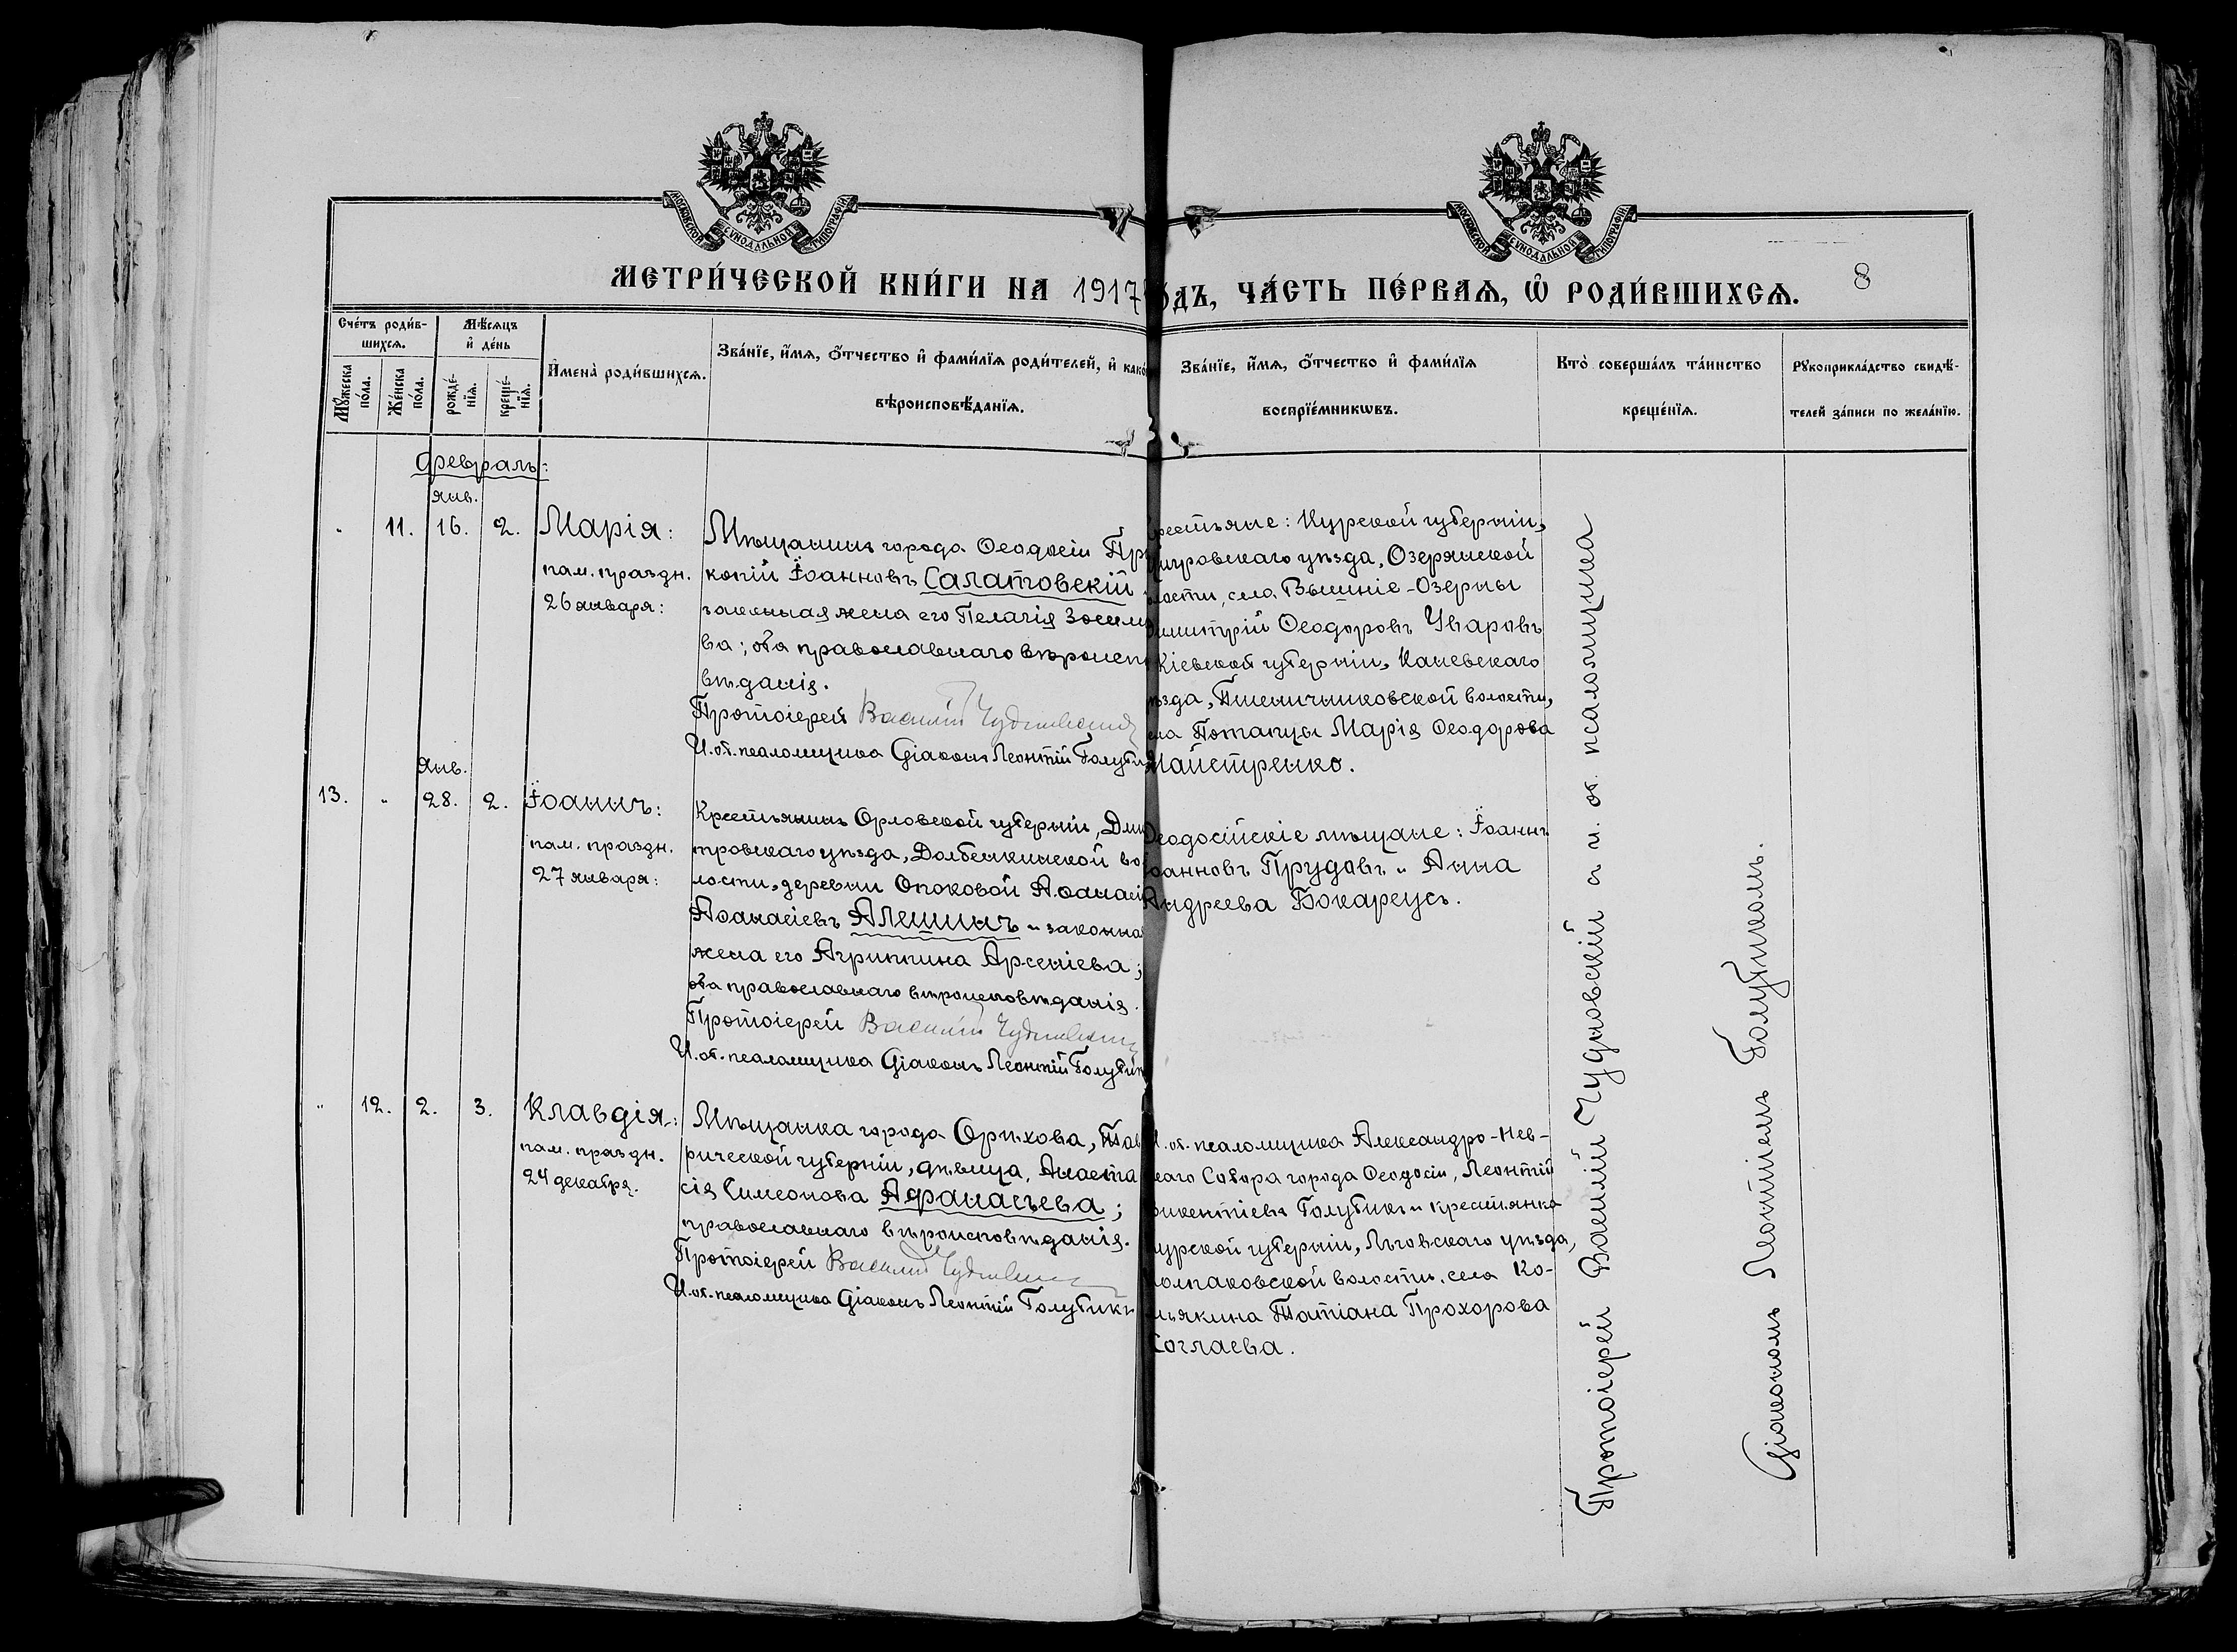 МОСКОВСКОЙ СѴНОДАЛЬНОЙ ТИПОГРАФІИ
МОСКОВСКОЙ СѴНОДАЛЬНОЙ ТИПОГРАФІИ
МЕТРИ́ЧЕСКОЙ КНИ́ГИ НА 1917 ГО́ДЪ, ЧА́СТЬ ПЕ́РВАѦ, Ѡ҆ РОДИ́ВШИХСѦ.
8
Сче́тъ роди́в-
шихсѧ.
Мꙋ́жеска
по́ла.
Же́нска
по́ла.
Мѣ́сѧцъ
и҆ де́нь
рожде́-
нїѧ.
креще́-
нїѧ.
И҆мена̀ роди́вшихсѧ.
Зва́нїе, и҆́мѧ, ѻ҆́тчество и҆ фами́лїѧ роди́телей, и҆ како́
вѣроисповѣ́данїѧ.
Зва́нїе, и҆́мѧ, ѻ҆́тчество и҆ фами́лїѧ
воспрїе́мникѡвъ.
Кто̀ соверша́лъ та́инство
креще́нїѧ.
Рꙋкоприкла́дство свидѣ́-
телей за́писи по жела́нїю.
Февраль:
янв.
" 11. 16. 2. Марія:
пам. праздн.
26 января:
Мѣщанинъ города Ѳеодосіи Пр
копій Іоанновъ Салатовскій
законная жена его Пелагія Зосим
ва; оба православнаго вѣроиспо
вѣданія.
Протоіерей Василій Чудновскій
И. об. псаломщика Діаконъ Леонтій Голуби
рестьяне: Курской губерніи,
игровскаго уѣзда, Озерянской
лости, села Вышніе-Озерны
имитрій Ѳеодоровъ Уваровъ
Кіевской губерніи, Каневскаго
ѣзда, Пшеничниковской волости,
ела Потапцы Марія Ѳеодорова
Майстренко.
янв.
13. " 28. 2. Іоаннъ:
пам. праздн.
27 января:
Крестьянинъ Орловской губерніи, Дми
тровскаго уѣзда, Долбенкинской во
лости, деревни Опоковой Аѳанасій
Аѳанасіевъ Алешинъ и законна
жена его Агриппина Арсеніева;
оба православнаго вѣроисповѣданія.
Протоіерей Василій Чудновскій
И. об. псаломщика Діаконъ Леонтій Голубин
Ѳеодосійскіе мѣщане: Іоаннъ
Іоанновъ Прудовъ и Анна
Андреева Бокареусъ.
" 12. 2. 3. Клавдія:
пам. праздн.
24 декабря.
Мѣщанка города Орѣхова, Тав
рической губерніи, дѣвица, Анаста
сія Симеонова Афанасьева;
православнаго вѣроисповѣданія.
Протоіерей Василій Чудновскій
И. об. псаломщика Діаконъ Леонтій Голубинъ
И. об. псаломщика Александро-Нев-
скаго Собора города Ѳеодосіи, Леонтій
икентіевъ Голубинъ и крестьянка
урской губерніи, Льговскаго уѣзда,
олпаковской волости, села Ко-
лякина Татіана Прохорова
Соглаева.
Протоіерей Василій Чудновскій съ и. об. псаломщика
Діакономъ Леонтіемъ Голубинымъ.